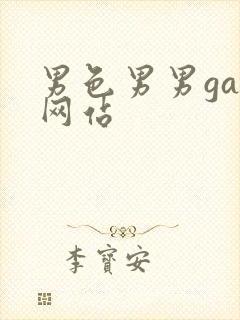 男色男男ga
网站
李寶安